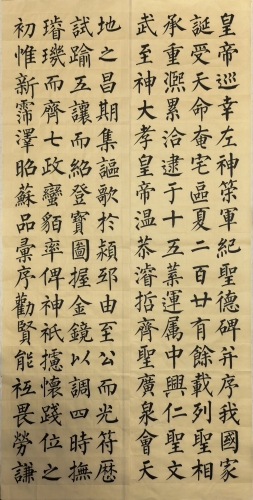 皇帝巡幸左神策軍紀聖德碑并序我國家
誕受天命奄宅區夏二百廿有餘載列聖相
承重熙累洽逮于十五葉運属中興仁聖文
武至神大孝皇帝温恭濬哲齊聖廣泉會天
地之昌期集謳歌於潁邸由至公而光符歷
試踰五讓而紹登寶圖握金鏡以調四時撫
璿璣而齊七政蠻貊率俾神祇攄懷踐位之
初惟新霈澤昭蘇品彙序勸賢能祗畏勞謙